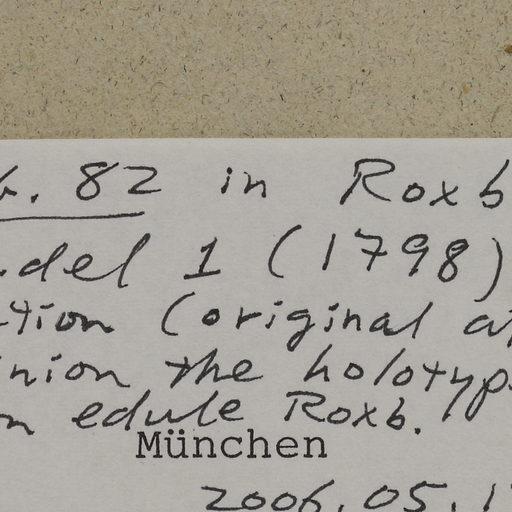 . 82 in Roxb
del 1 (1798)
tion (original at
nion the holotyp
n edule Roxb.
München
2006.05.1